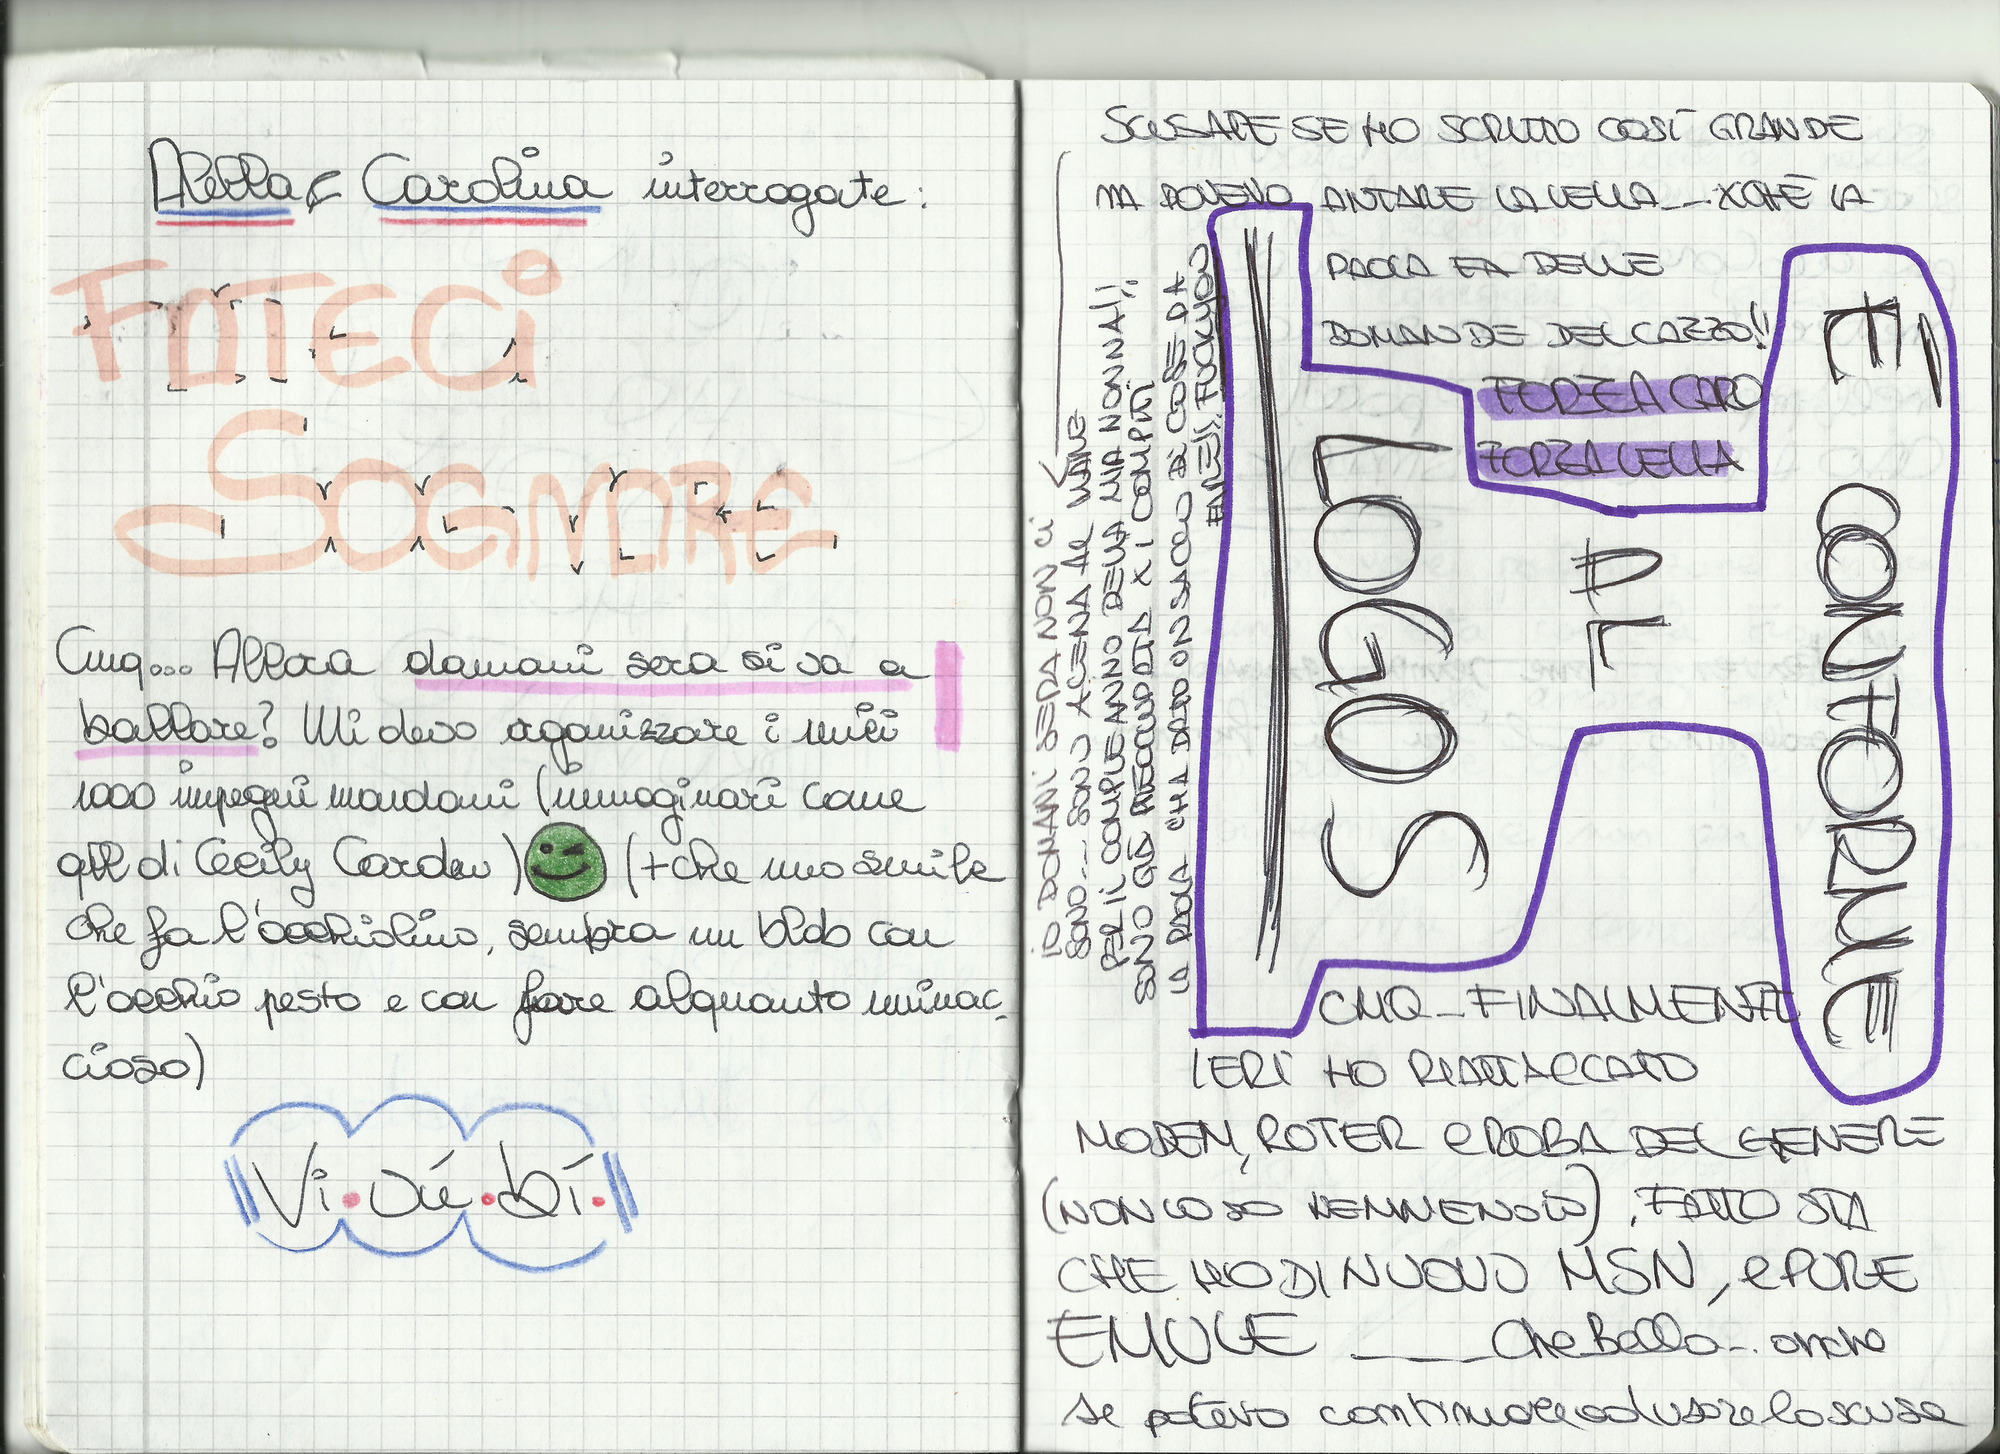 Alella e Carolina interrogate:
FATECI
SOGNARE
Cmq... Allora domani sera si va a
ballare? Mi devo organizzare i miei
1000 impegni mondani (immaginari come
qll di Cecily Cardew) (+ che uno smile
che fa l'occhiolino, sembra un bldo con
l'occhio pesto e con fare alquanto minac-
cioso)
Vi.vù.bì.
SCUSATE SE HO SCRITTO COSÌ GRANDE
MA DOVEVO AIUTARE LA LELLA... XCHÈ LA
PAOLA FA DELLE
DOMANDE DEL CAZZO!!
FORZA CARO
FORZA LELLA
IL LOGOS
È CONFORME
AL
IO DOMANI SERA NON CI
SONO... SONO A CENA AL MARE
PER IL COMPLEANNO DELLA MIA NONNA!!;
SONO GIÀ X I COMPITI
LA PAOLA CI HA DATO UN SACCO DI COSE DA
FARE!!, FUCK YOU
CMQ... FINALMENTE
IERI HO RIATTACCATO
MODEM, ROTER E ROBA DEL GENERE
(NON LO SO NEMMENO IO), FATTO STA
CHE HO DI NUOVO MSN, e PURE
EMULE ____ Che Bello... anche
se potevo continuare ad usare la scusa